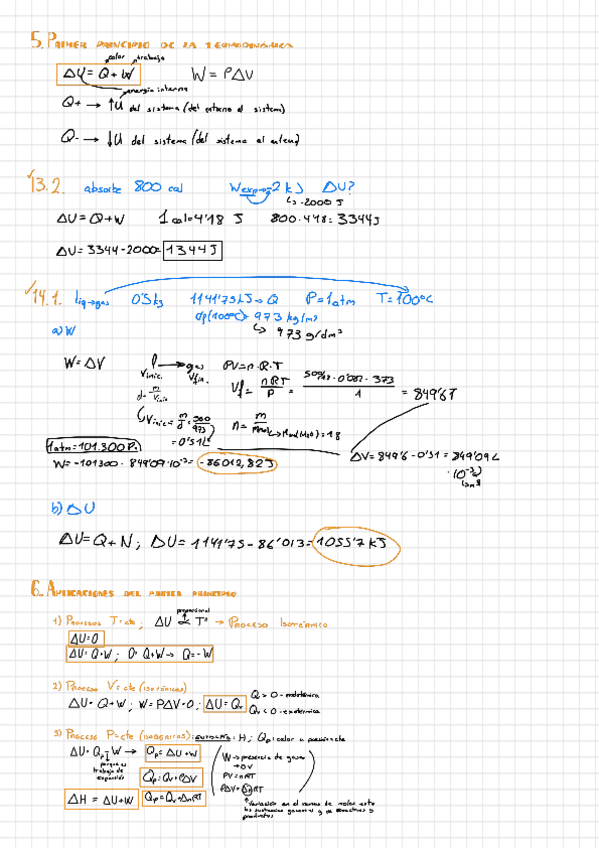 5. PRIMER PRINCIPIO DE LA TERMODINÁMICA
calor trabajo
ΔU = Q + W W = PΔV
energía interna
Q+ → ↑U del sistema (del externo al sistema)
Q- → ↓U del sistema (del sistema al externo)
13.2. absorbe 800 cal Wexp=2kJ ΔU?
↳ -2000 J
ΔU = Q + W 1 cal = 4'18 J 800·4'18 = 3344J
ΔU = 3344 - 2000 = 1344 J
14.1. liq→gas 0'5 kg 1141'75 kJ → Q P=1atm T=100ºC
dp(100ºC) = 973 kg/m³
a) W ↳ 973 g/dm³
W = ΔV l → gas PV = n·R·T
Vinic. Vfin. Vf = nRT/P = 500/18 · 0'082 · 373 / 1 = 849'6 J
d = m/Vinic
↳ Vinic = m/d = 500/973 = 0'51 L n = m/Mm ↳ Mm(H₂O) = 18
1atm = 101.300 Pa
W = -101300 · 849'09 · 10⁻³ = -86012,82 J ΔV = 849'6 - 0'51 = 849'09 L
· 10⁻³
↳ m³
b) ΔU
ΔU = Q + W ; ΔU = 1141'75 - 86'013 = 1055'7 kJ
6. APLICACIONES DEL PRIMER PRINCIPIO
proporcional
1) PROCESOS T=cte; ΔU ∝ Tª → PROCESO ISOTÉRMICO
ΔU=0
ΔU = Q + W ; 0 = Q + W → Q = -W
2) PROCESO V=cte (isotónicos)
ΔU = Q + W ; W = PΔV = 0 ; ΔU = Qv
Qv > 0 - endotérmica
Qv < 0 - exotérmica
3) PROCESO P=cte (isobáricos): ENTALPÍA: H ; Qp: calor a presión cte
ΔU = Qp - W → Qp = ΔU + W
porque es trabajo de expansión
Qp = Qv + PΔV
ΔH = ΔU + W Qp = Qv + ΔnRT
W → presencia de gases
→ ΔV
PV = nRT
PΔV = ΔnRT
↑ Variación en el número de moles entre
las sustancias gaseosas y de reactivos y
productos